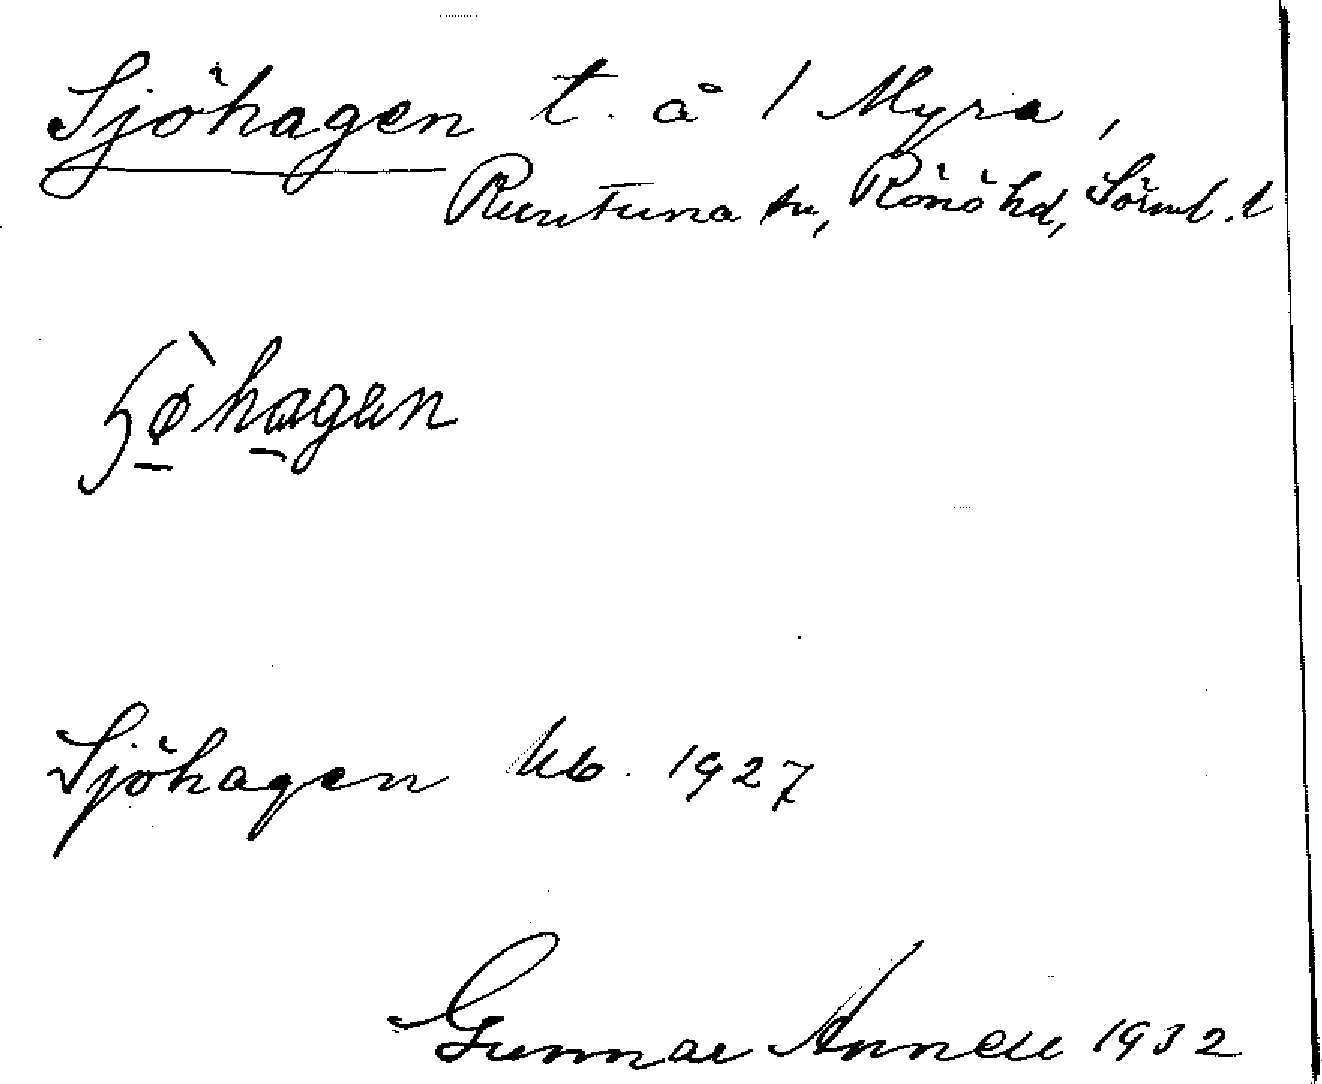 Sjöhagen t. å 1 Myra,
Runtuna sn, Rönö hd, Sörml. l
ʃø̀hagen
Sjöhagen kb. 1927
Gunnar Annell 1932